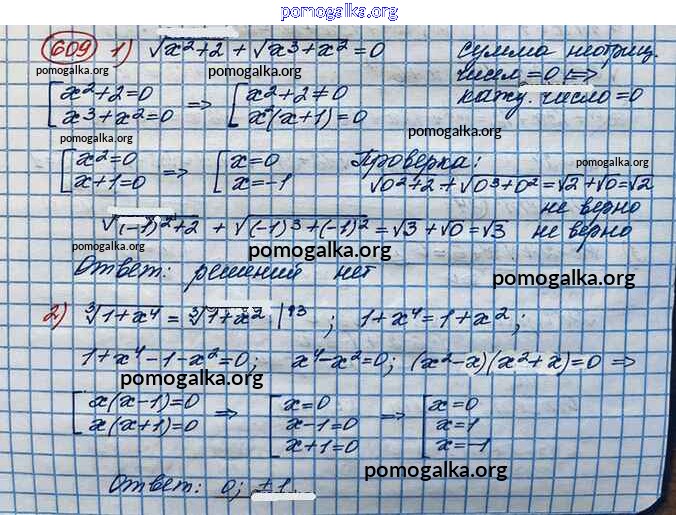 pomogalka.org
609 1) √x²+2 + √x³+x² = 0 сумма неотриц.
pomogalka.org pomogalka.org чисел = 0 <=>
[ x²+2=0 => [ x²+2≠0 кажд. число = 0
x³+x²=0 x²(x+1)=0
pomogalka.org pomogalka.org
[ x²=0 => [ x=0 Проверка: pomogalka.org
x+1=0 x=-1 √0²+2 + √0³+0² = √2 + √0 = √2
pomogalka.org не верно
√(-1)²+2 + √(-1)³+(-1)² = √3 + √0 = √3 не верно
pomogalka.org pomogalka.org
Ответ: решений нет pomogalka.org
2) ³√1+x⁴ = ³√1+x² |↑3 ; 1+x⁴ = 1+x² ;
1+x⁴-1-x²=0; x⁴-x²=0; (x²-x)(x²+x)=0 =>
pomogalka.org
[ x(x-1)=0 => [ x=0 => [ x=0
x(x+1)=0 x-1=0 x=1
x+1=0 x=-1
pomogalka.org
Ответ: 0; ±1.